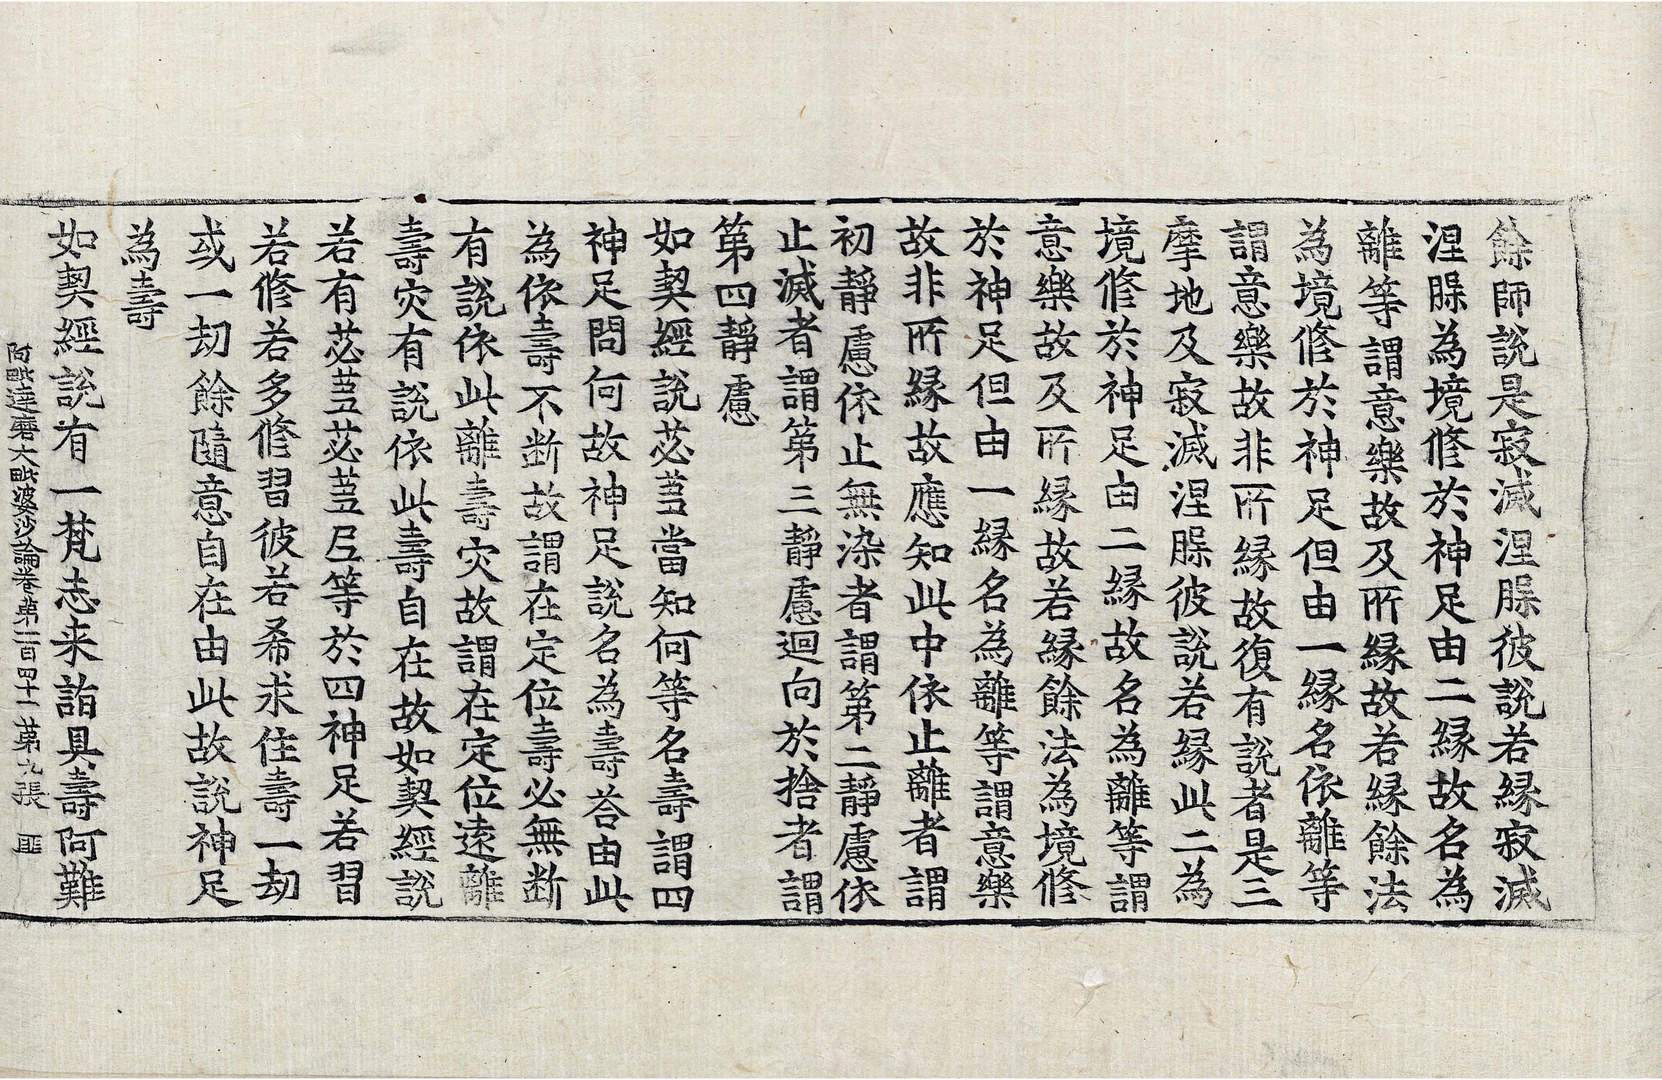 餘師說是寂滅涅槃彼說若縁寂滅
涅槃為境修於神足由二縁故名為
離等謂意樂故及所縁故若縁餘法
為境修於神足但由一縁名依離等
謂意樂故非所縁故復有說者是三
摩地及寂滅涅槃彼說若縁此二為
境修於神足由二縁故名為離等謂
意樂故及所縁故若縁餘法為境修
於神足但由一縁名為離等謂意樂
故非所縁故應知此中依止離者謂
初靜慮依止無染者謂第二靜慮依
止滅者謂第三靜慮迴向於捨者謂
第四靜慮
如契經說苾蒭當知何等名壽謂四
神足問何故神足說名為壽荅由此
為依壽不断故謂在定位壽必無断
有說依此離壽灾故謂在定位遠離
壽灾有說依此壽自在故如契經說
若有苾蒭苾蒭尼等於四神足若習
若修若多修習彼若希求住壽一劫
或一劫餘隨意自在由此故說神足
為壽
如契經說有一梵志来詣具壽阿難
阿毗達磨大毗婆沙論卷第一百四十一 第九張 匪